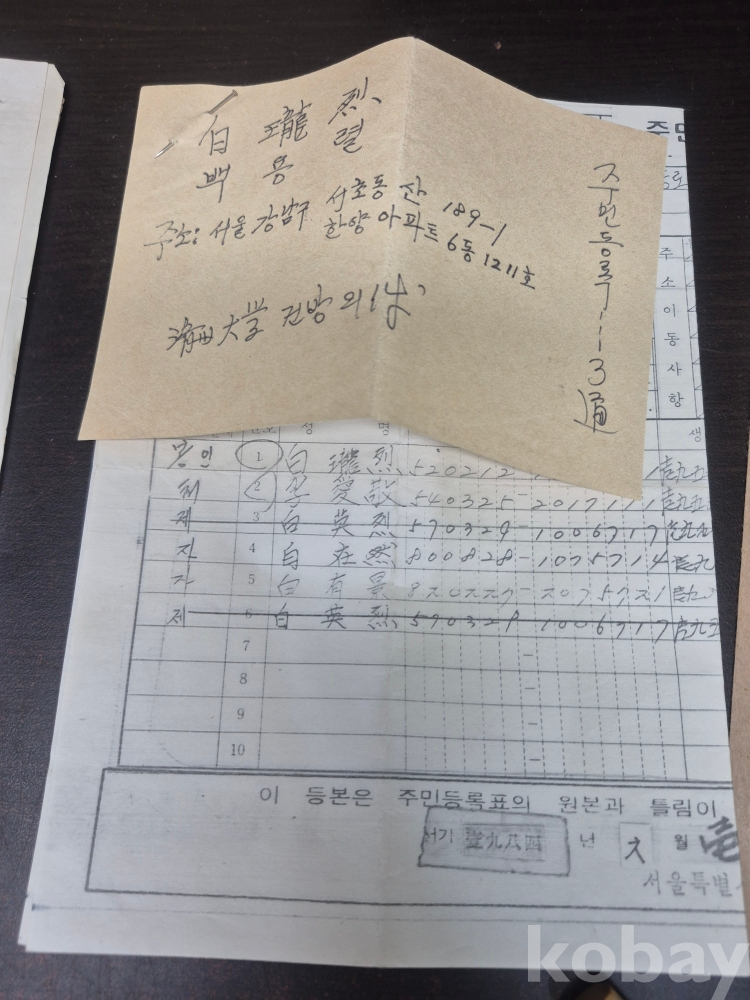 白 瓏 烈
백 용 렬
주소: 서울 강남구 서초동 산 189-1
한양 아파트 6동 1211호
大学 건방
주민등록 - - - 3 通
주민
주소이동사항
성 명
생
본인 1 白 瓏烈 520212
처 2 愛敬 540325-2017111
제 3 白 英烈 570329-1006717
자 4 白 在然 800828-1075714
자 5 白 有景
제 6 白 英烈 570329-1006717
7 -
8 -
9 -
10 -
이 등본은 주민등록표의 원본과 틀림이
서기 壹九八四 년 月 월 壱
서울특별
kobay